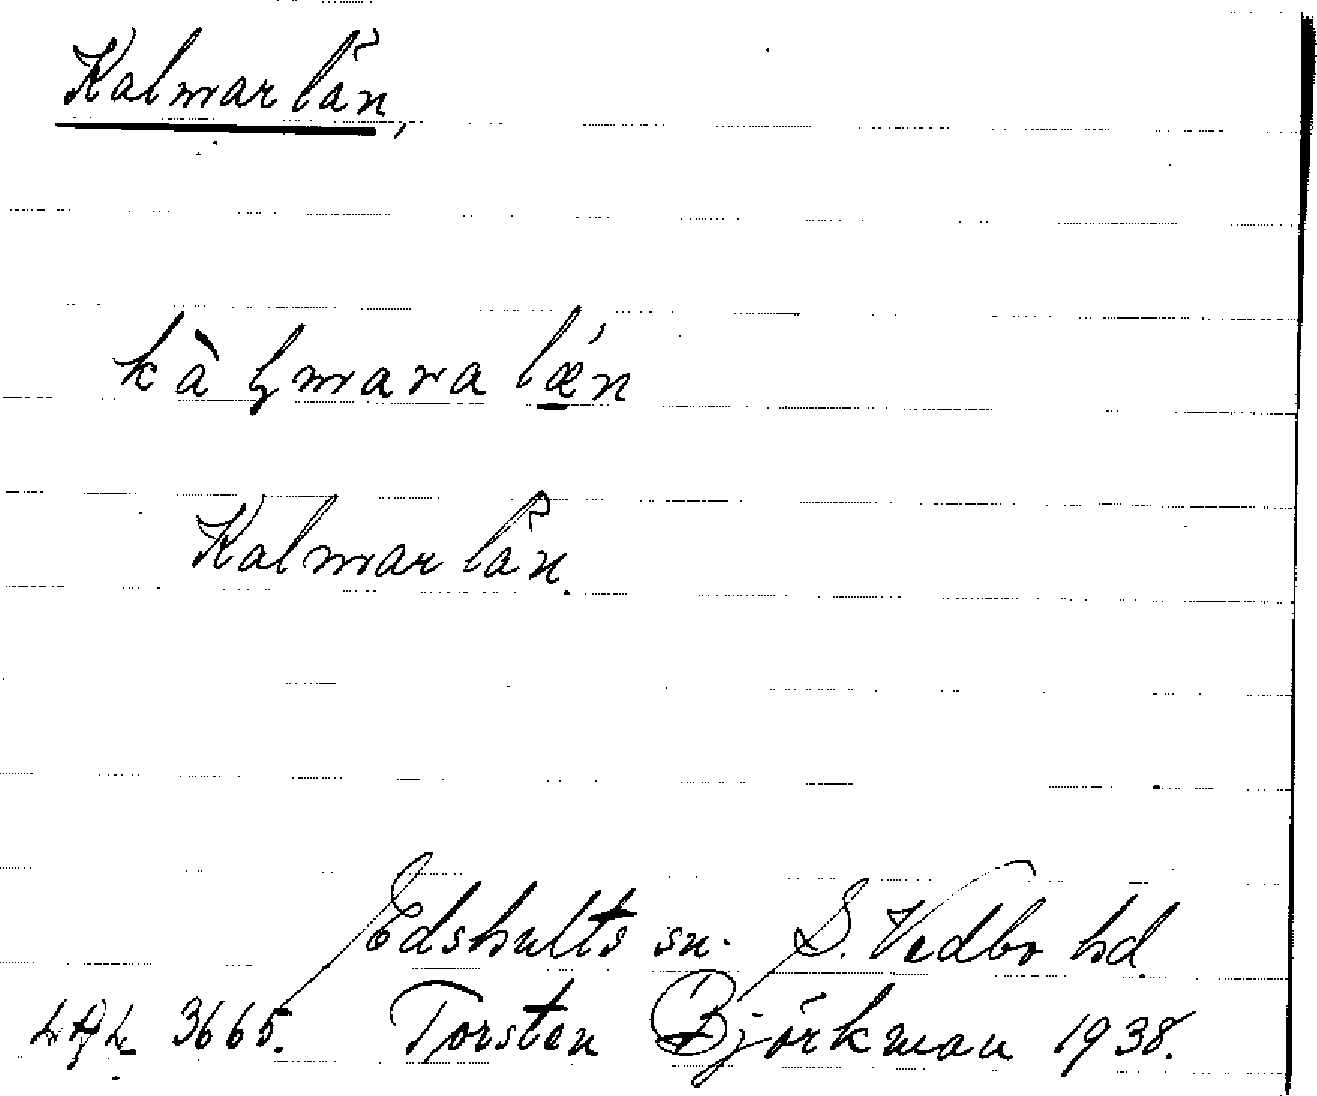 Kalmar län,
kàɭmara lǽn
Kalmar län.
Edshults sn. S. Vedbo hd.
3665. Torsten Björkman 1938.